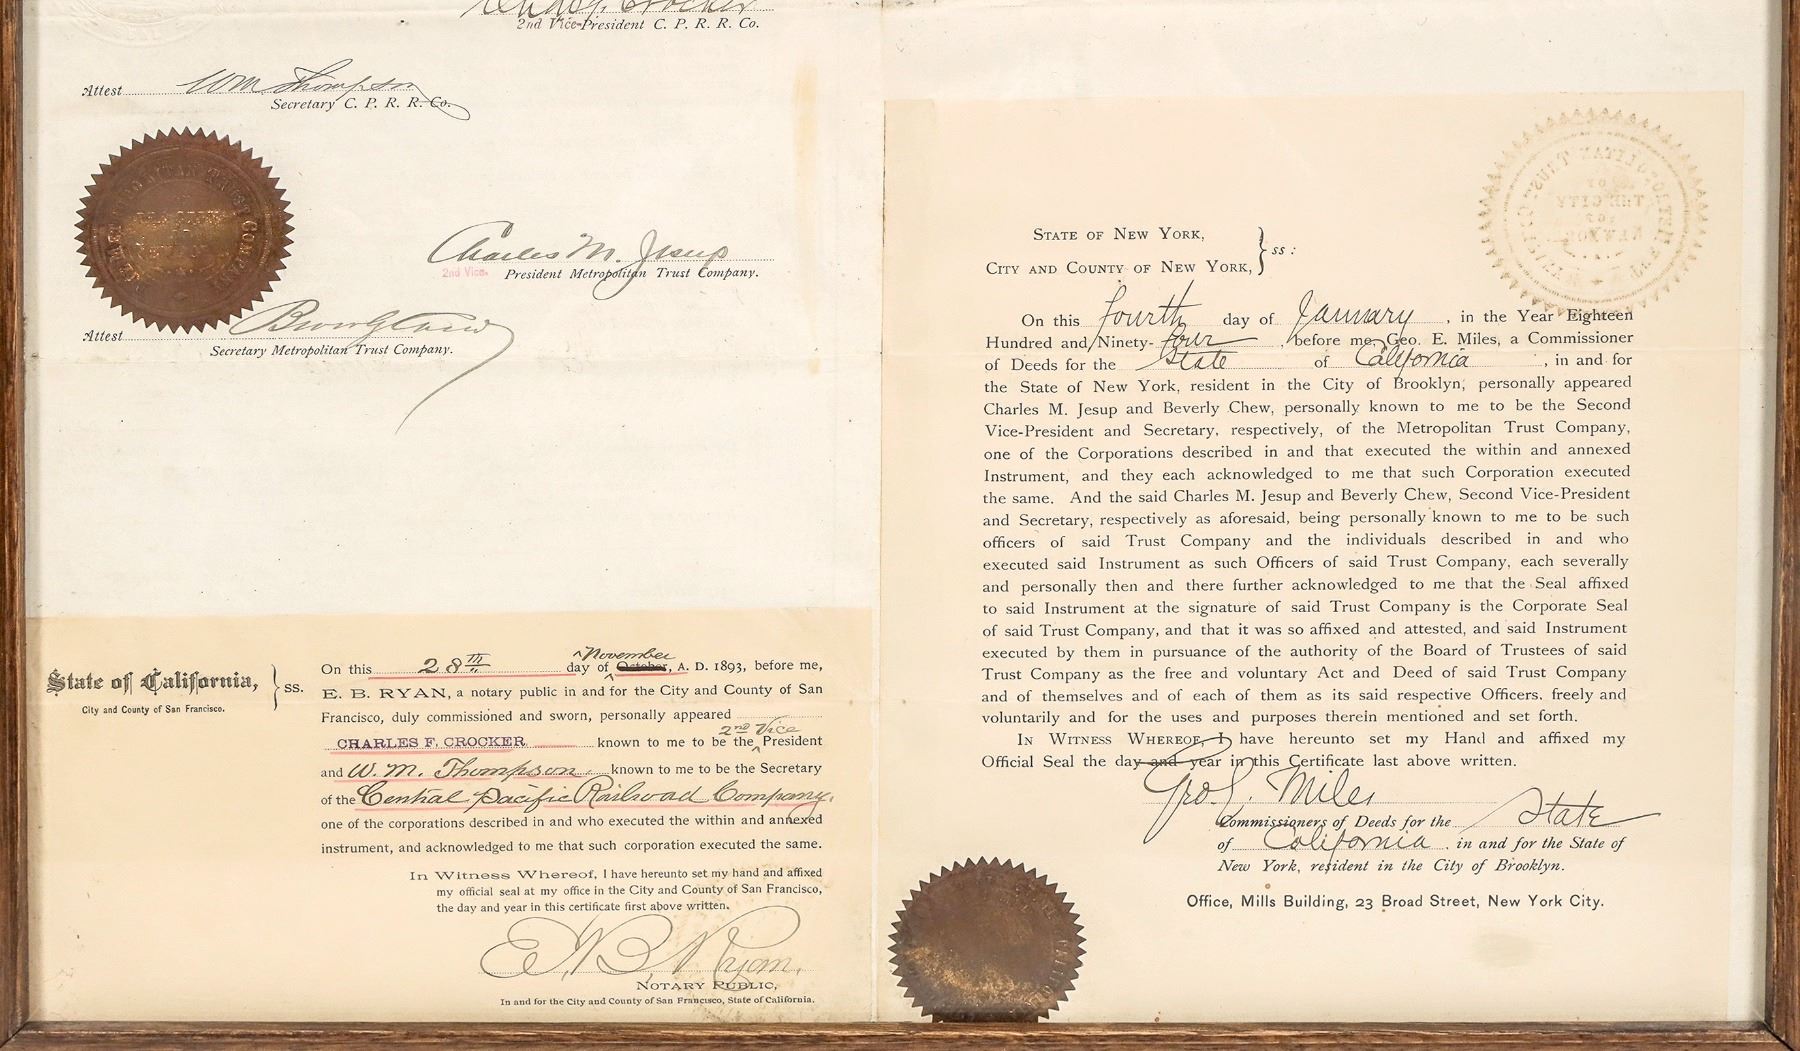 Crocker
2nd Vice-President C. P. R. R. Co.
Attest Wm Thompson
Secretary C. P. R. R. Co.
TRUST COMPANY
Charles M. Jesup
2nd Vice- President Metropolitan Trust Company.
Attest
Secretary Metropolitan Trust Company.
State of California,
City and County of San Francisco.
} ss.
On this 28th day of ^November October, A. D. 1893, before me,
E. B. RYAN, a notary public in and ^ for the City and County of San
Francisco, duly commissioned and sworn, personally appeared
CHARLES F. CROCKER known to me to be the ^2nd Vice President
and W. M. Thompson known to me to be the Secretary
of the Central Pacific Railroad Company,
one of the corporations described in and who executed the within and annexed
instrument, and acknowledged to me that such corporation executed the same.
In Witness Whereof, I have hereunto set my hand and affixed
my official seal at my office in the City and County of San Francisco,
the day and year in this certificate first above written.
E. B. Ryan.
NOTARY PUBLIC,
In and for the City and County of San Francisco, State of California.
STATE OF NEW YORK,
CITY AND COUNTY OF NEW YORK,
} ss:
On this fourth day of January, in the Year Eighteen
Hundred and Ninety-four, before me, Geo. E. Miles, a Commissioner
of Deeds for the State of California, in and for
the State of New York, resident in the City of Brooklyn, personally appeared
Charles M. Jesup and Beverly Chew, personally known to me to be the Second
Vice-President and Secretary, respectively, of the Metropolitan Trust Company,
one of the Corporations described in and that executed the within and annexed
Instrument, and they each acknowledged to me that such Corporation executed
the same. And the said Charles M. Jesup and Beverly Chew, Second Vice-President
and Secretary, respectively as aforesaid, being personally known to me to be such
officers of said Trust Company and the individuals described in and who
executed said Instrument as such Officers of said Trust Company, each severally
and personally then and there further acknowledged to me that the Seal affixed
to said Instrument at the signature of said Trust Company is the Corporate Seal
of said Trust Company, and that it was so affixed and attested, and said Instrument
executed by them in pursuance of the authority of the Board of Trustees of said
Trust Company as the free and voluntary Act and Deed of said Trust Company
and of themselves and of each of them as its said respective Officers, freely and
voluntarily and for the uses and purposes therein mentioned and set forth.
IN WITNESS WHEREOF, I have hereunto set my Hand and affixed my
Official Seal the day and year in this Certificate last above written.
Geo. E. Miles
Commissioners of Deeds for the State
of California in and for the State of
New York, resident in the City of Brooklyn.
Office, Mills Building, 23 Broad Street, New York City.